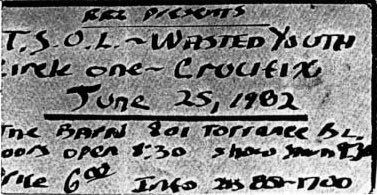 PRESENTS
T.S.O.L. ~ WASTED YOUTH
CIRCLE ONE ~ CRUCIFIX
JUNE 25, 1982
THE BARN 801 TORRANCE BL.
DOORS OPEN 8:30 SHOW
PRICE 6.00 INFO